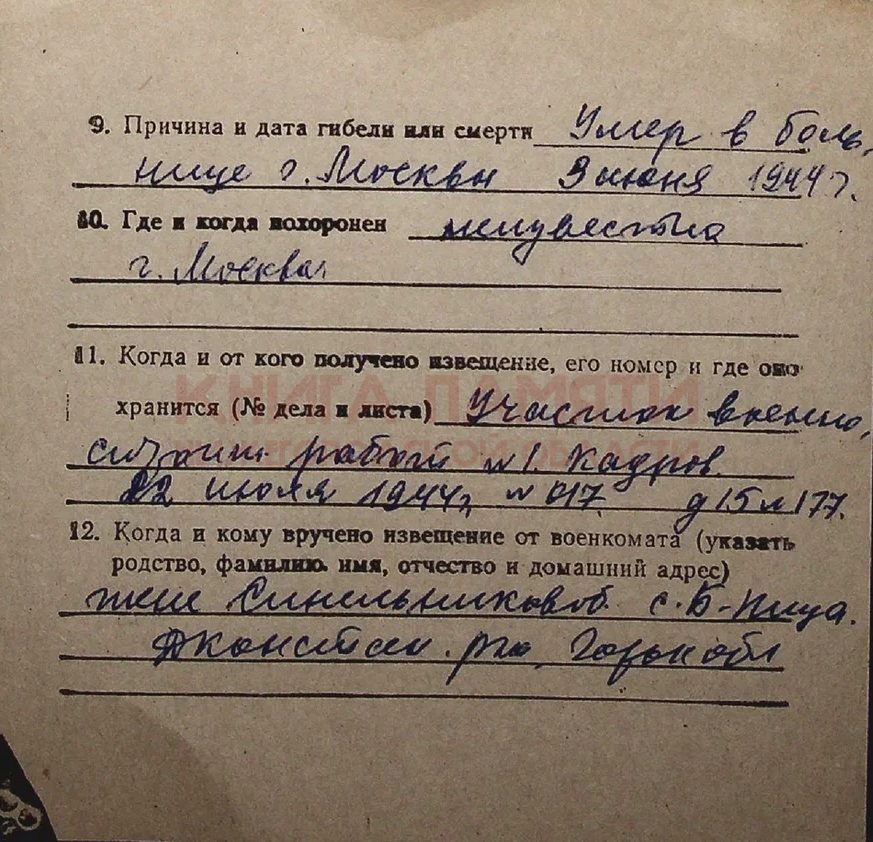 9. Причина и дата гибели или смерти Умер в боль,
нице г. Москвы 3 июня 1944 г.
10. Где и когда похоронен неизвестно
г. Москва
11. Когда и от кого получено извещение, его номер и где оно
КНИГА ПАМЯТИ
хранится (№ дела и листа) Участок военно,
строит. работ №1. Кадров
22 июля 1944 г. № 017. д 15 л 177.
12. Когда и кому вручено извещение от военкомата (указать
родство, фамилию, имя, отчество и домашний адрес)
жене Синельниковой с. Б-
Горьк обл